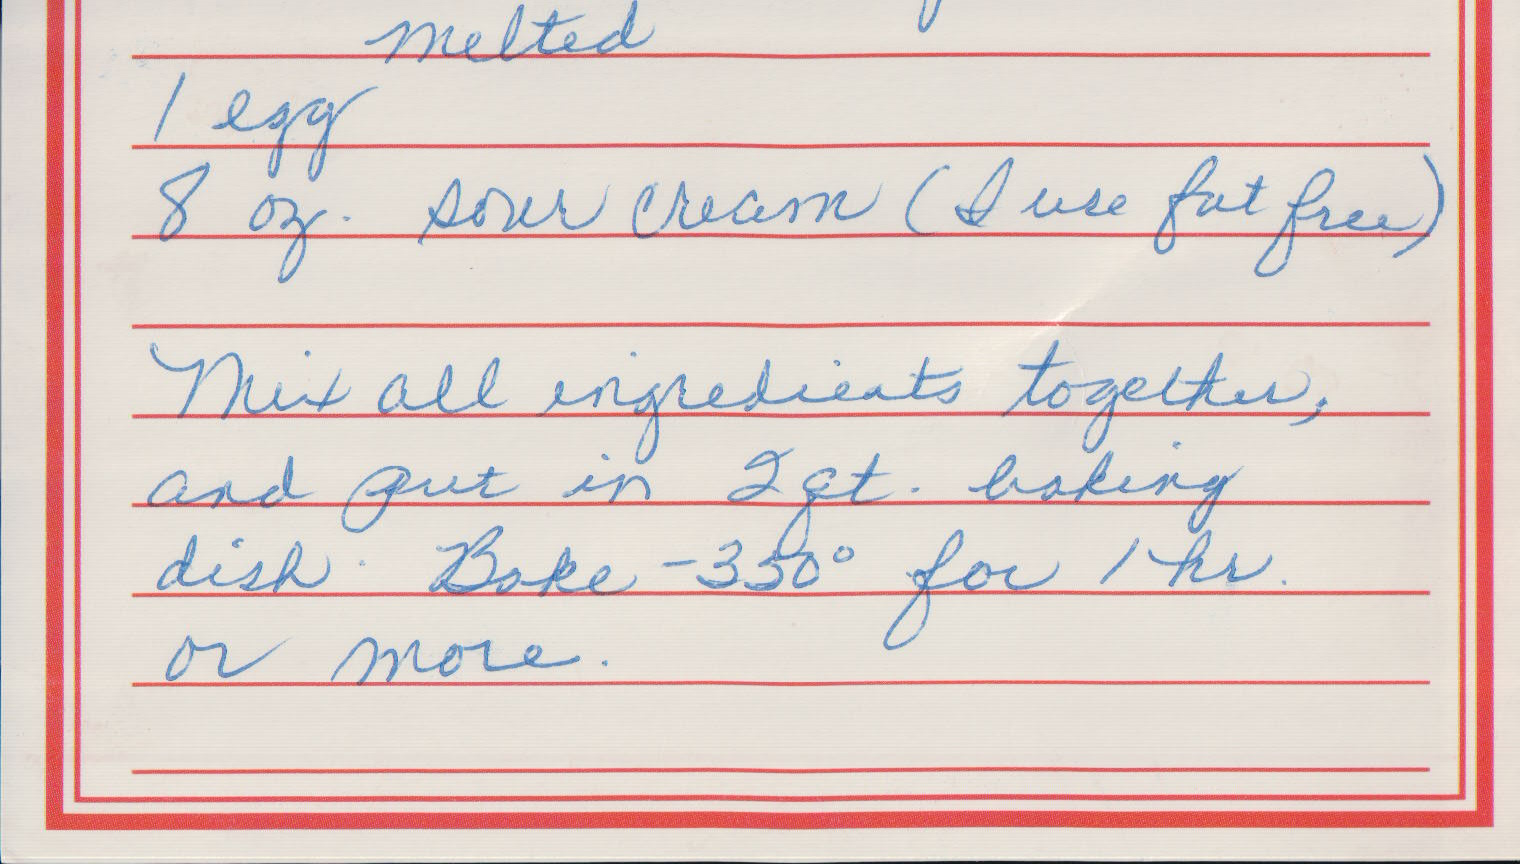 melted
1 egg
8 oz. sour cream (I use fat free)
Mix all ingredients together,
and put in 2 qt. baking
dish. Bake - 350° for 1 hr.
or more.